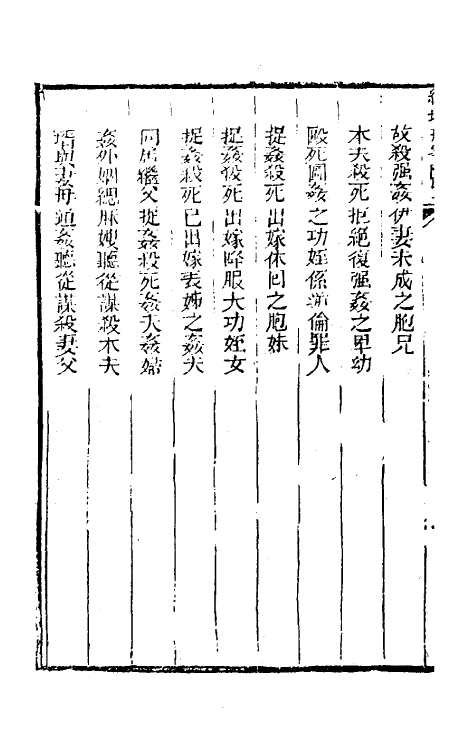 故殺强姦伊妻未成之胞兄
本夫殺死拒絶復强姦之卑幼
毆死圖姦之功姪係漸倫罪人
捉姦殺死出嫁休回之胞妹
捉姦殺死出嫁降服大功姪女
捉姦殺死已出嫁表姊之姦夫
同居繼父捉姦殺死姦夫姦婦
姦外姻緦麻嫂聽從謀殺本夫
壻與妻母通姦聽從謀殺妻父